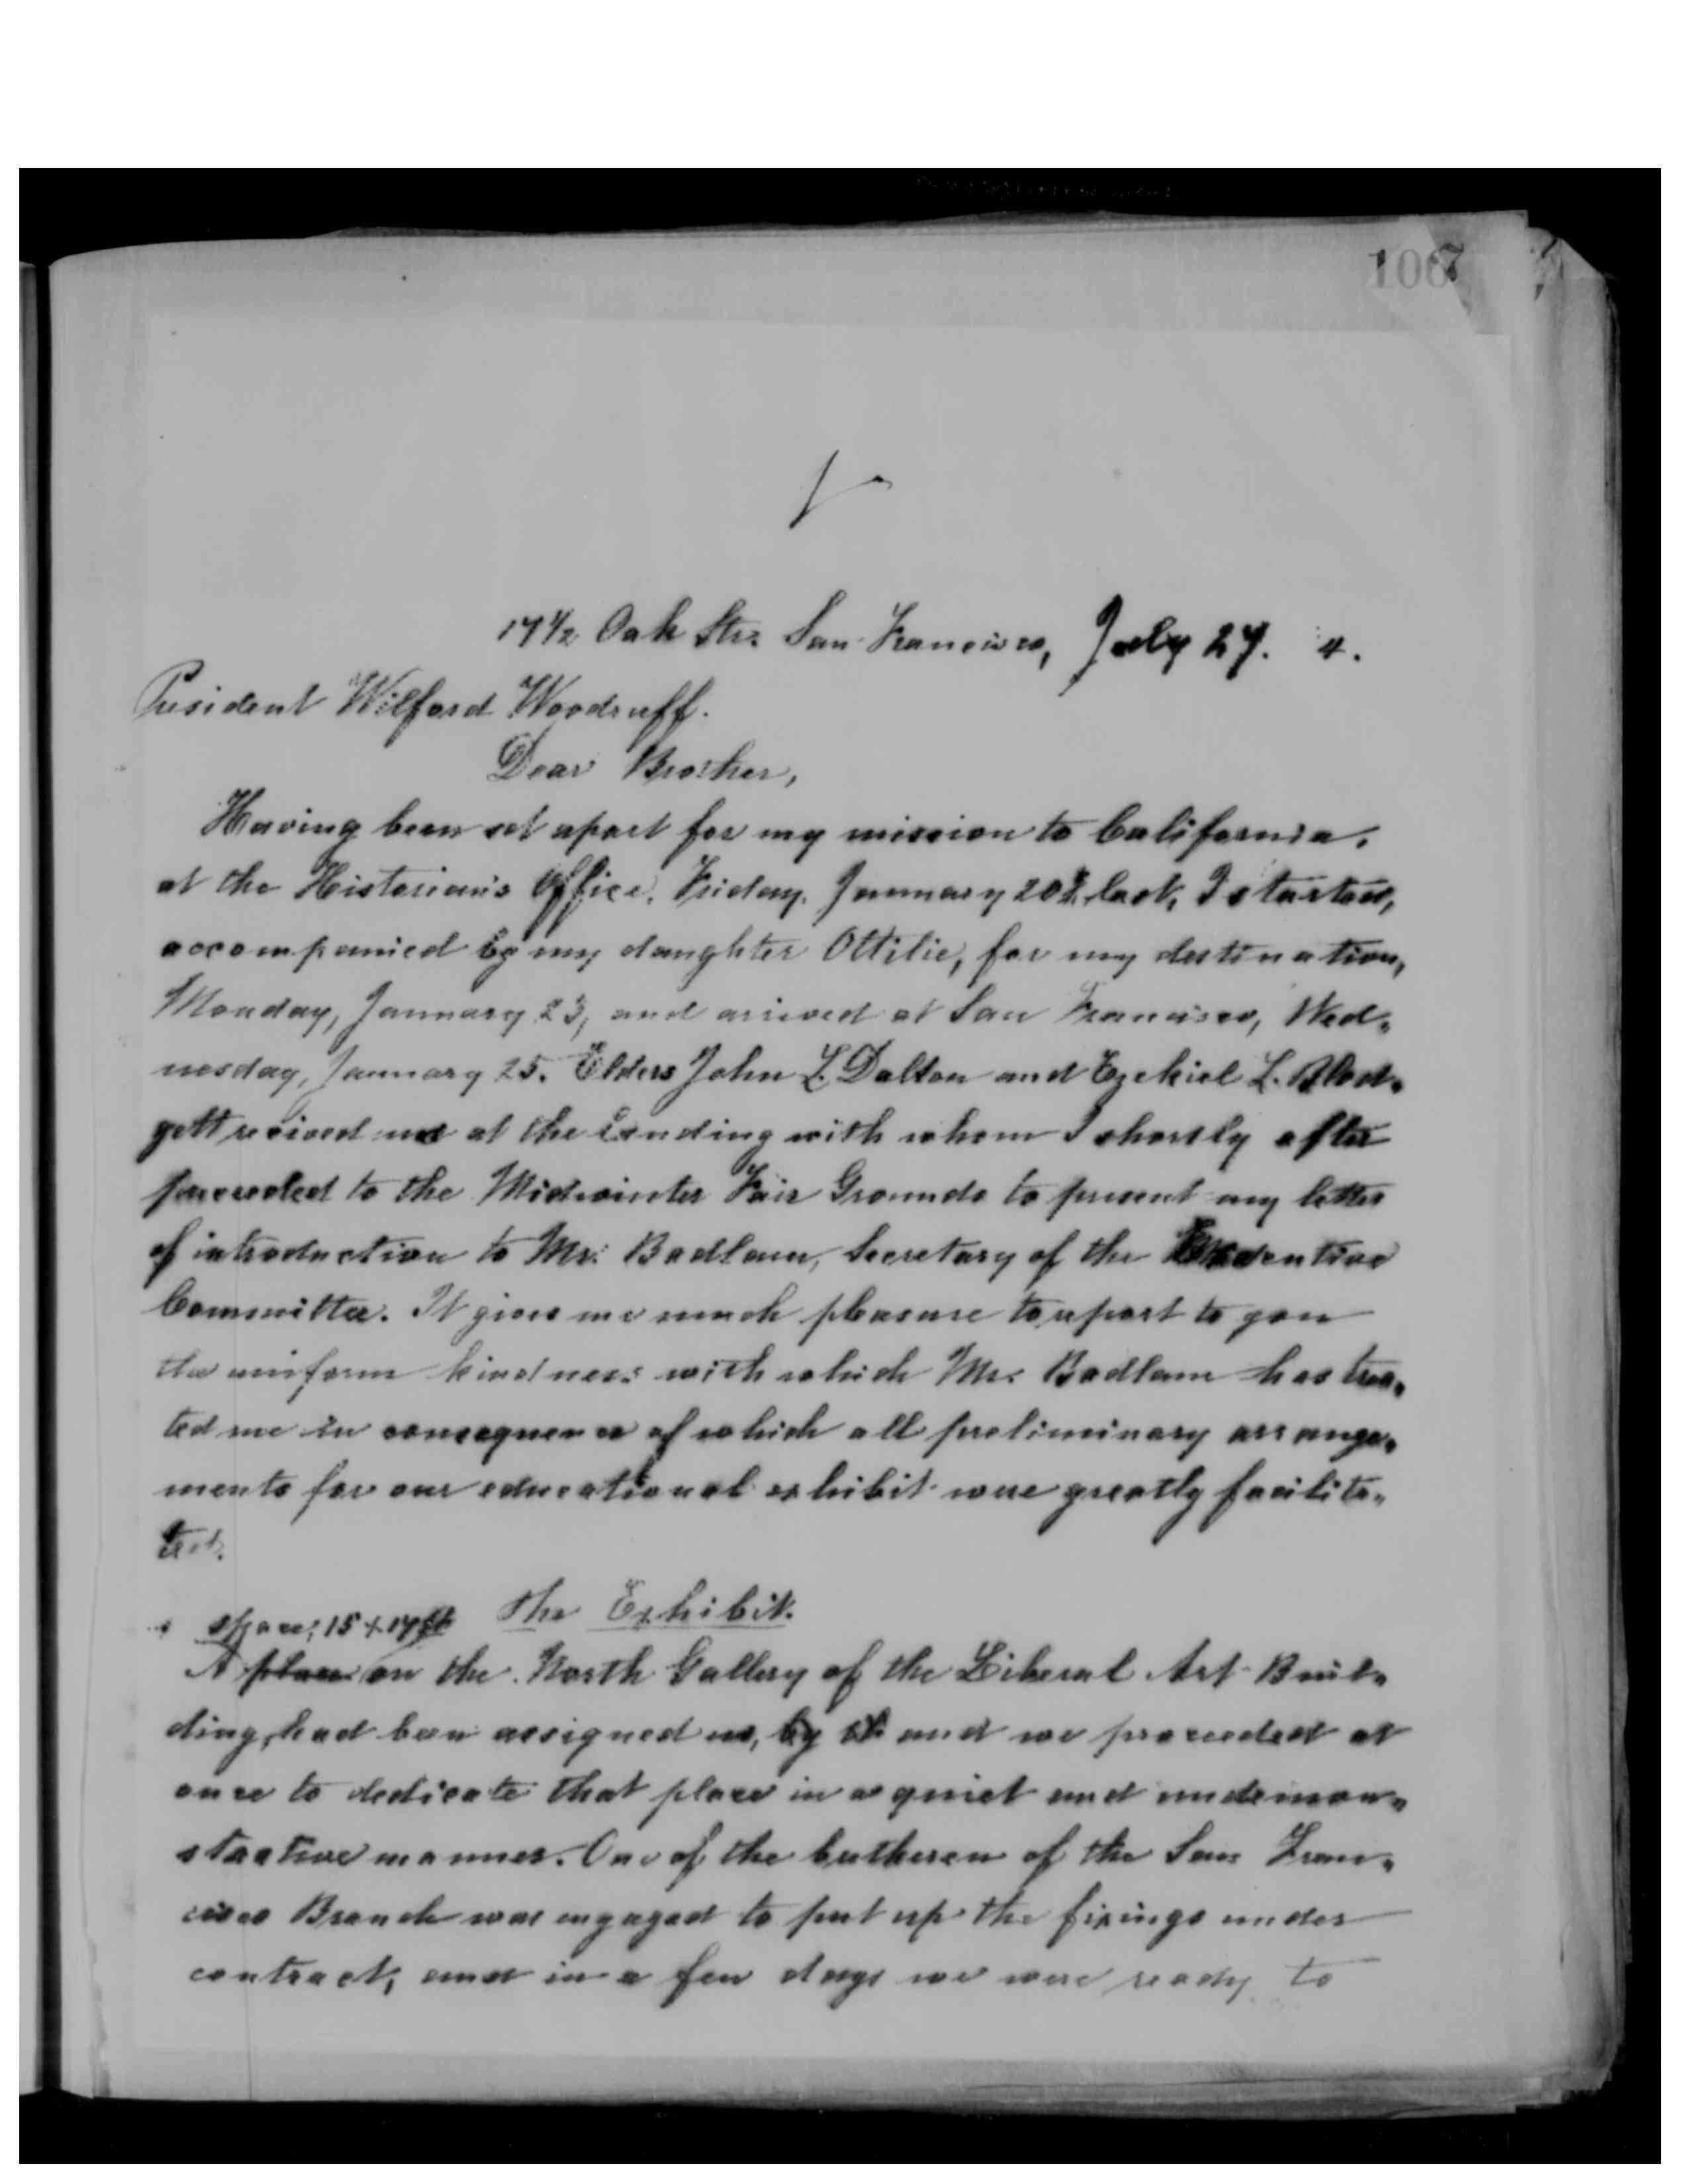 107
17 1/2 Oak Str. San Francisco, July 27. 4.
President Wilford Woodruff.
Dear Brother,
Having been set apart for my mission to California,
at the Historian's Office, Friday, January 20th last, I started,
accompanied by my daughter Ottilie, for my destination,
Monday, January 23, and arrived at San Francisco, Wed-
nesday, January 25. Elders John L. Dalton and Ezekiel L. Blod-
gett received me at the landing with whom I shortly after
proceeded to the Midwinter Fair Grounds to present my letter
of introduction to Mr. Badlam, Secretary of the
Committee. It gives me much pleasure to report to you
the uniform kindness with which Mr. Badlam has trea-
ted me in consequence of which all preliminary arrange-
ments for our educational exhibit were greatly facilita-
ted.
The Exhibit.
space, 15 + 17 ft
A place on the North Gallery of the Liberal Art Buil-
ding, had been assigned us, by and we proceeded at
once to dedicate that place in a quiet and undemon-
strative manner. One of the brtheren of the San Fran-
cisco Branch was engaged to put up the fixings under
contract, and in a few days we were ready to